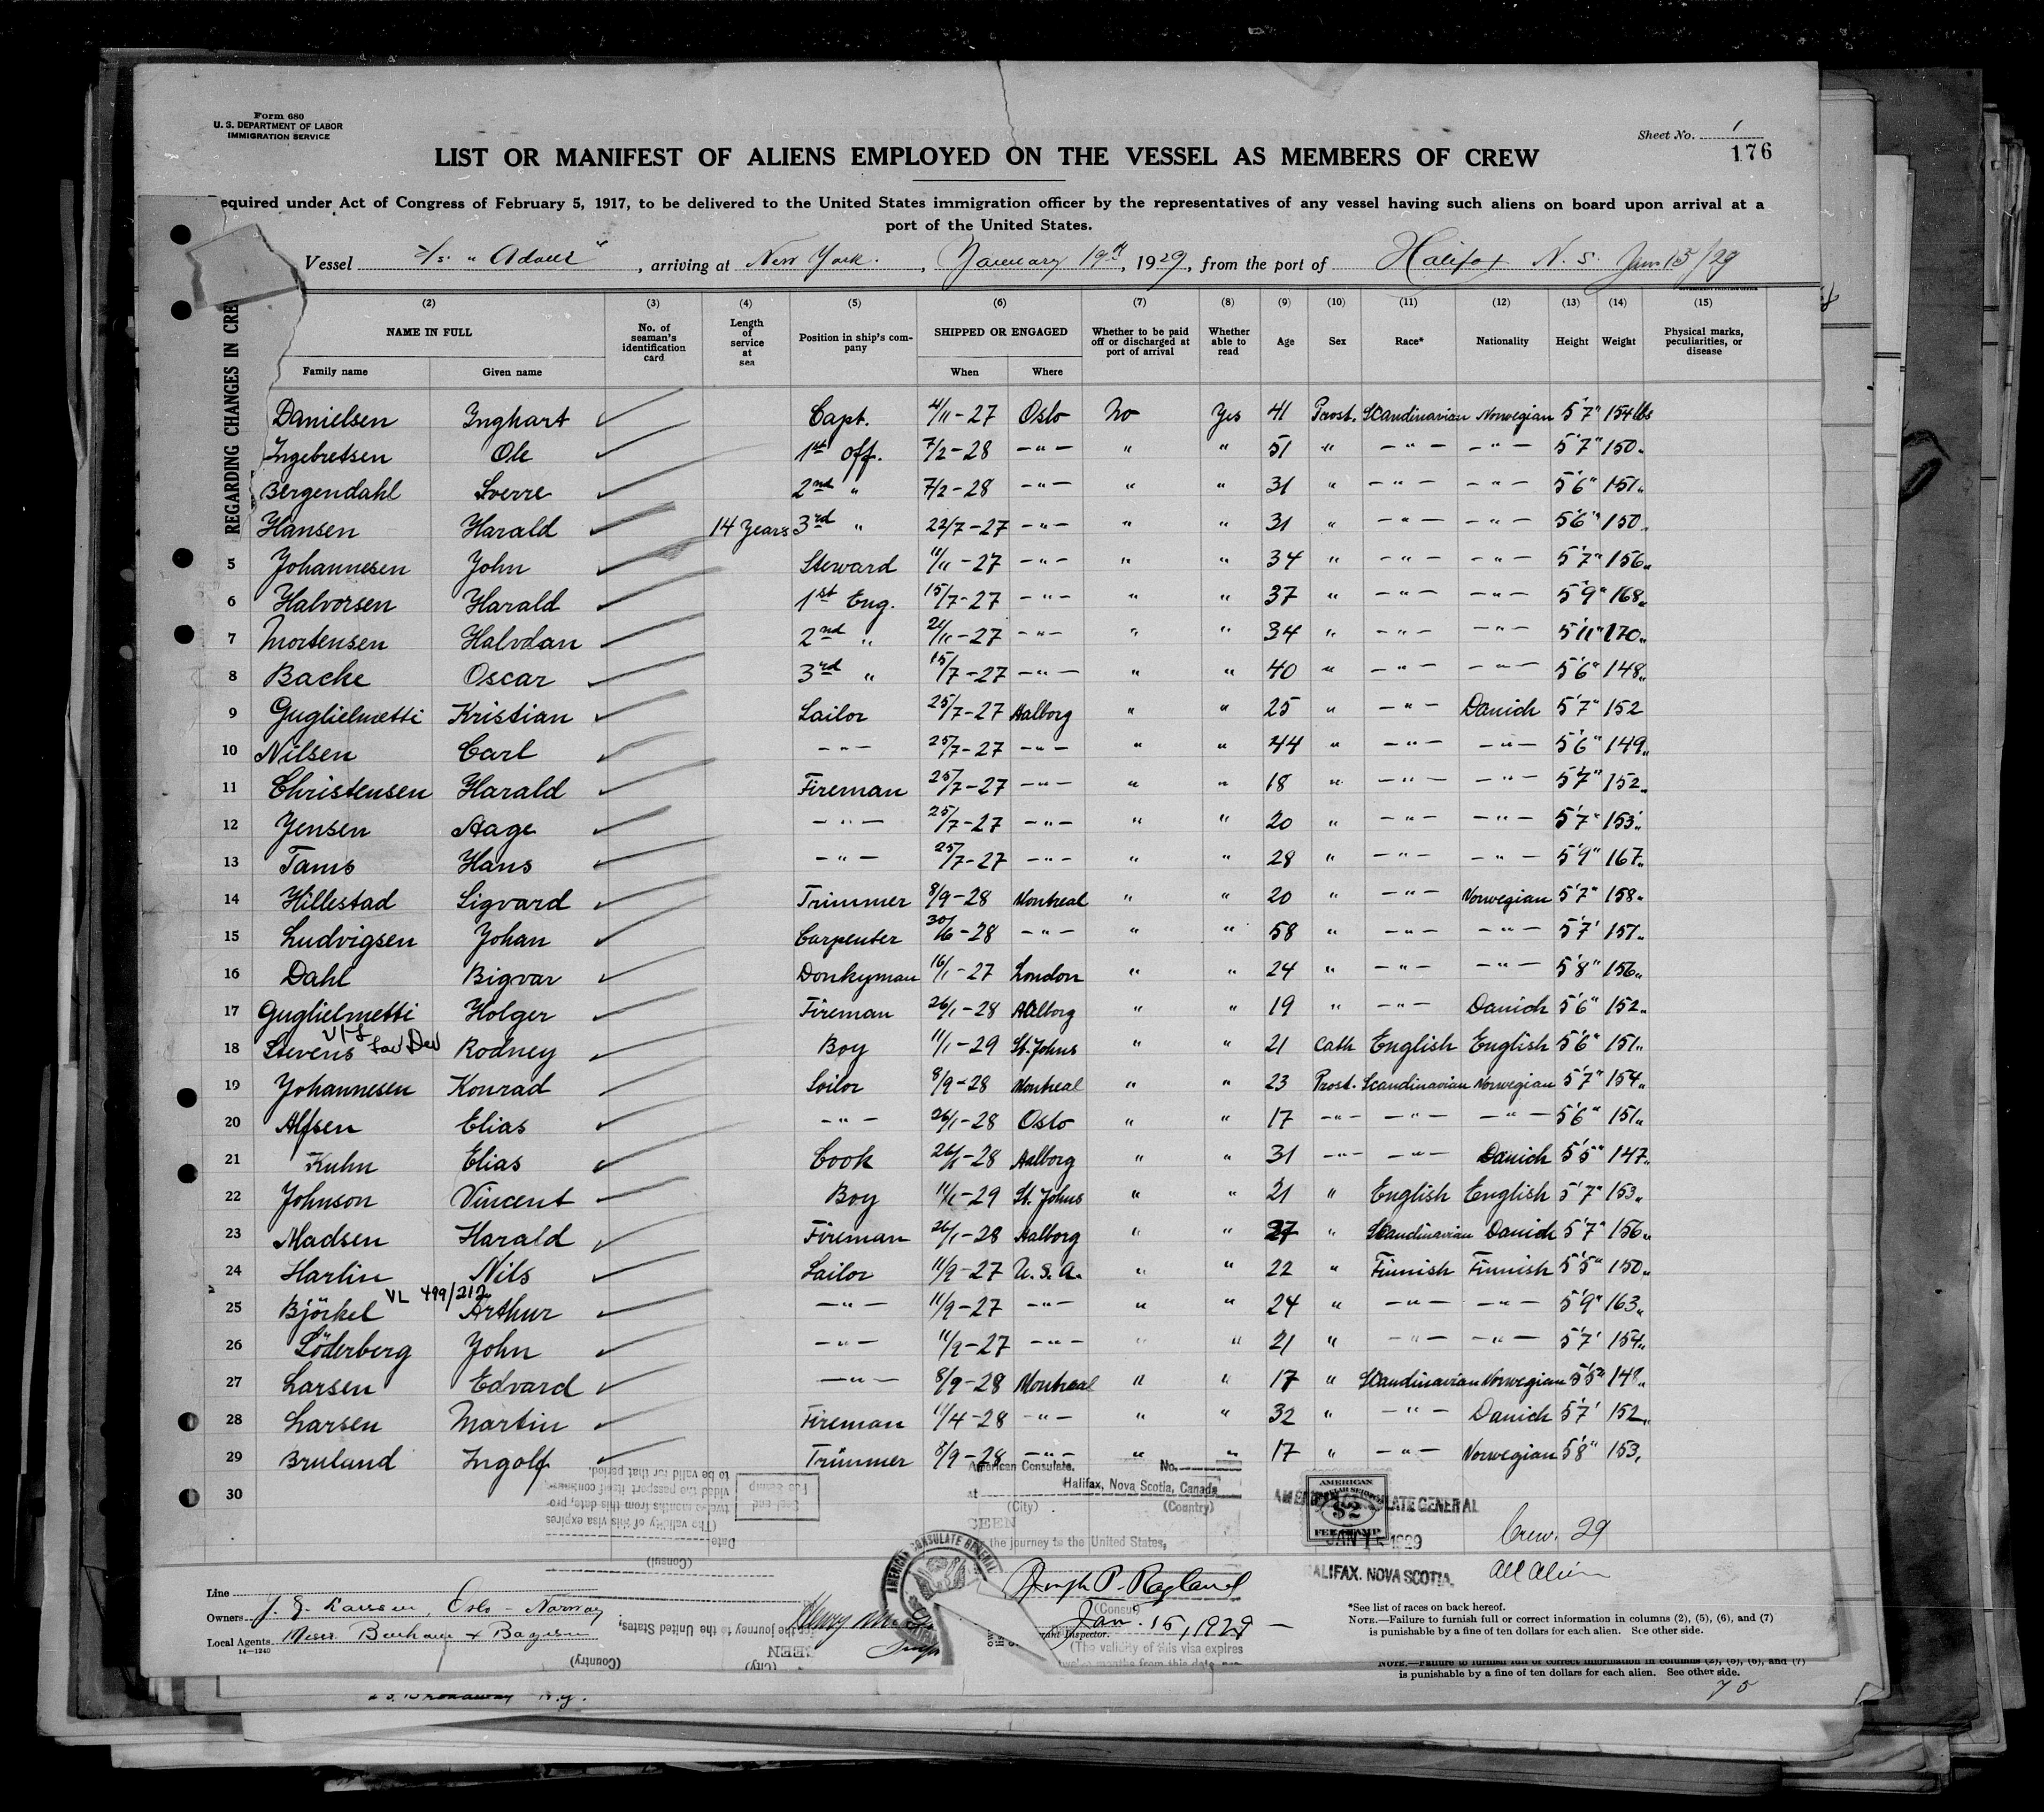 Form 680
U. S. DEPARTMENT OF LABOR
IMMIGRATION SERVICE
Sheet No. 1
176
LIST OR MANIFEST OF ALIENS EMPLOYED ON THE VESSEL AS MEMBERS OF CREW
equired under Act of Congress of February 5, 1917, to be delivered to the United States immigration officer by the representatives of any vessel having such aliens on board upon arrival at a
port of the United States.
Vessel S/s. , arriving at New York. , January 19th, 1929, from the port of Halifax N. S. Jan 15/29
REGARDING CHANGES IN CRE
(2) (3) (4) (5) (6) (7) (8) (9) (10) (11) (12) (13) (14) (15)
NAME IN FULL No. of seaman's identification card Length of service at sea Position in ship's company SHIPPED OR ENGAGED Whether to be paid off or discharged at port of arrival Whether able to read Age Sex Race* Nationality Height Weight Physical marks, peculiarities, or disease
Family name Given name When Where
Danielsen Inghart Capt. 4/11-27 Oslo No Yes 41 Prost. Scandinavian Norwegian 5'7" 154 lbs
Ingebretsen Ole 1st off. 7/2-28 -"- " " 51 " -"- -"- 5'7" 150 "
Bergendahl Sverre 2nd " 7/2-28 -"- " " 31 " -"- -"- 5'6" 151 "
Hansen Harald 14 Years 3rd " 22/7-27 -"- " " 31 " -"- -"- 5'6" 150 "
5 Johannesen John Steward 11/11-27 -"- " " 34 " -"- -"- 5'7" 156 "
6 Halvorsen Harald 1st Eng. 15/7-27 -"- " " 37 " -"- -"- 5'9" 168 "
7 Mortensen Halvdan 2nd " 21/11-27 -"- " " 34 " -"- -"- 5'11" 170 "
8 Backe Oscar 3rd " 15/7-27 -"- " " 40 " -"- -"- 5'6" 148 "
9 Guglielmetti Kristian Sailor 25/7-27 Aalborg " " 25 " -"- Danich 5'7" 152
10 Nilsen Carl -"- 25/7-27 -"- " " 44 " -"- -"- 5'6" 149 "
11 Christensen Harald Fireman 25/7-27 -"- " " 18 " -"- -"- 5'7" 152 "
12 Jensen Aage -"- 25/7-27 -"- " " 20 " -"- -"- 5'7" 153 "
13 Tams Hans -"- 25/7-27 -"- " " 28 " -"- -"- 5'9" 167 "
14 Hillestad Sigvard Trimmer 8/9-28 Montreal " " 20 " -"- Norwegian 5'7" 158 "
15 Ludvigsen Johan Carpenter 30/6-28 -"- " " 58 " -"- -"- 5'7' 157 "
16 Dahl Bigvar Donkyman 16/1-27 London " " 24 " -"- -"- 5'8" 156 "
17 Guglielmetti Holger Fireman 26/1-28 Aalborg " " 19 " -"- Danich 5'6" 152 "
18 Stevens Rodney Boy 11/1-29 St. Johns " " 21 Cath English English 5'6" 151 "
19 Johannesen Konrad Soilor 8/9-28 Montreal " " 23 Prost. Scandinavian Norwegian 5'7" 154 "
20 Alfsen Elias -"- 26/1-28 Oslo " " 17 -"- -"- -"- 5'6" 151 "
21 Kuhn Elias Cook 26/1-28 Aalborg " " 31 -"- -"- Danich 5'5" 147 "
22 Johnson Vincent Boy 11/1-29 St. Johns " " 21 " English English 5'7" 153 "
23 Madsen Harald Fireman 26/1-28 Aalborg " " 27 " Scandinavian Danich 5'7" 156 "
24 Harlin Nils Sailor 11/9-27 U. S. A. " " 22 " Finnish Finnish 5'5" 150 "
VL 499/212
25 Björkel Arthur -"- 11/9-27 -"- " " 24 " -"- -"- 5'9" 163 "
26 Söderberg John -"- 11/9-27 -"- " " 21 " -"- -"- 5'7' 154 "
27 Larsen Edvard -"- 8/9-28 Montreal " " 17 " Scandinavian Norwegian 5'5" 148 "
28 Larsen Martin Fireman 11/4-28 -"- " " 32 " -"- Danich 5'7' 152 "
29 Bruland Ingolf Trimmer 8/9-28 -"- " " 17 " -"- Norwegian 5'8" 153 "
30
American Consulate. No.
at Halifax, Nova Scotia, Canada
(City) (Country)
SEEN
the journey to the United States,
to be valid for that period.
vided the passport itself continues
twelve months from this date, pro-
(The validity of this visa expires
Date
(Consul)
Seal and Fee Stamp
AMERICAN CONSULATE GENERAL
AMERICAN
$2
FEE STAMP
JAN 15 1929
HALIFAX, NOVA SCOTIA.
Crew. 29
All Alien
Joseph P. Ragland
(Consul)
Jan. 15, 1929
Immigrant Inspector.
(The validity of this visa expires
twelve months from this date, pro-
Line
Owners Oslo - Norway
Local Agents Messr.
14-1240
the journey to the United States,
SEEN
(City)
(Country)
*See list of races on back hereof.
NOTE.—Failure to furnish full or correct information in columns (2), (5), (6), and (7)
is punishable by a fine of ten dollars for each alien. See other side.
NOTE.—Failure to furnish full or correct information in columns (2), (5), (6), and (7)
is punishable by a fine of ten dollars for each alien. See other side.
25 Broadway N.Y.
70